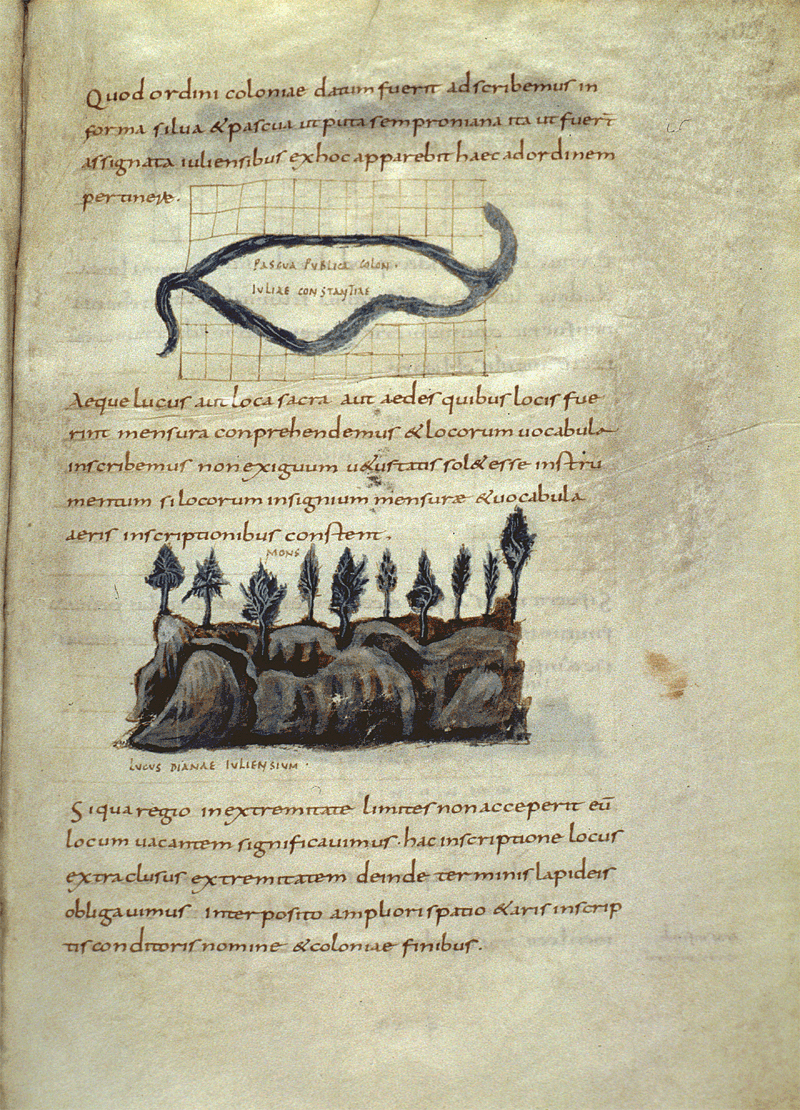 Quod ordini coloniae datum fuerit adscribemus in
forma silua & pascua ut puta semproniana ita ut fuer̄t
assignata iuliensibus ex hoc apparebit haec ad ordinem
pertinere.
PASCUA PUBLICA COLON·
IULIAE CONSTANTIAE
Aeque lucus aut loca sacra aut aedes quibus locis fue
rint mensura conprehendemus & locorum uocabula
inscribemus non exiguum u&ustatis sol& esse instru
mentum si locorum insignium mensuræ & uocabula
aeris inscriptionibus constent.
MONS
LUCUS DIANAE IULIENSIUM·
Si qua regio in extremitate limites non acceperit eū
locum uacantem significauimus· hac inscriptione locus
extraclusus extremitatem deinde terminis lapideis
obligauimus interposito ampliori spatio & aris inscrip
tis conditoris nomine & coloniae finibus.